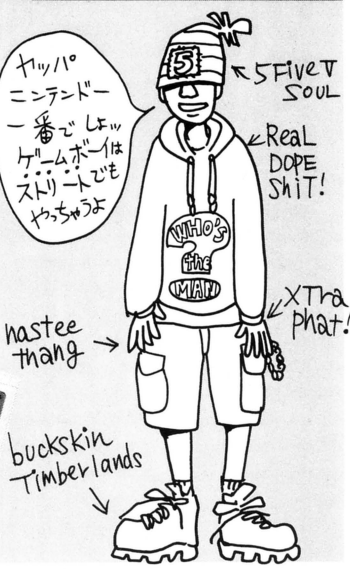 ヤッパ
ニンテンドー
一番でしょッ
ゲームボーイは
ストリートでも
やっちゃうよ
5
5FiveV
SOUL
ReaL
DOPE
ShiT!
WHO'S
the
MAN
XTra
phat!
nastee
thang
buckskin
Timberlands